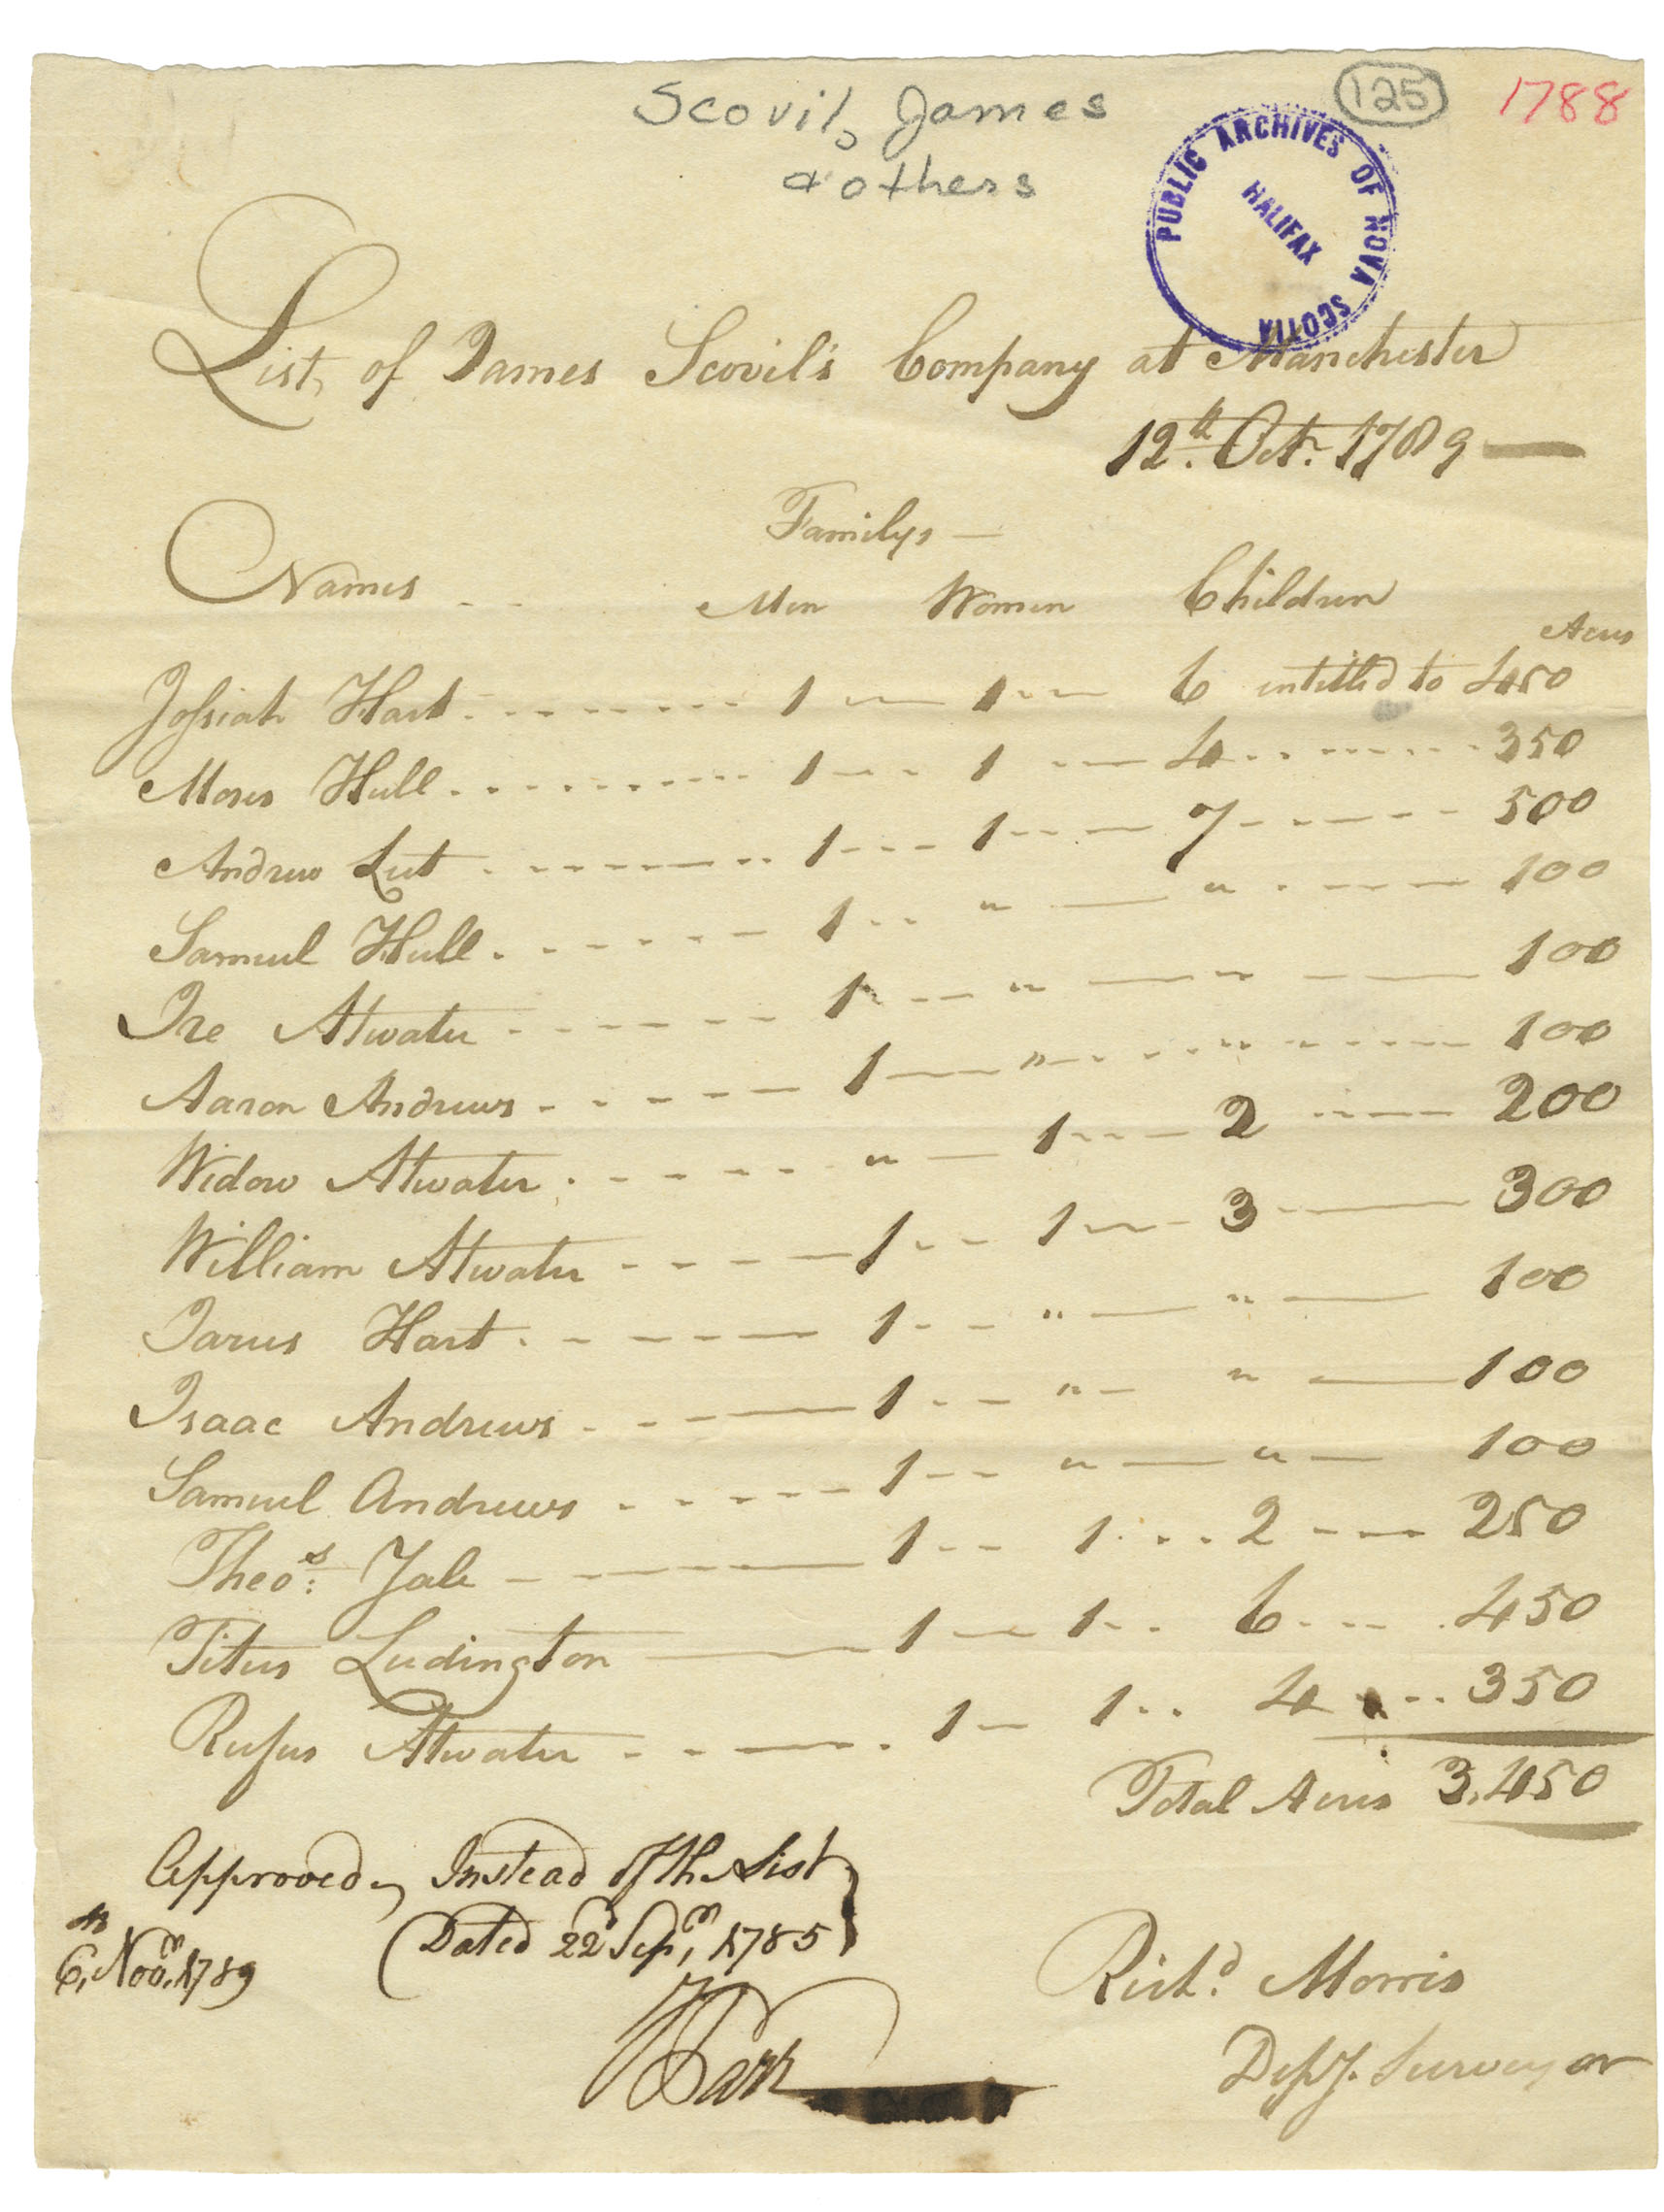 Scovil, James
& others
125
1788
PUBLIC ARCHIVES OF NOVA SCOTIA
HALIFAX
List, of James Scovil's Company at Manchester
12th Octr. 1789 —
Familys —
Names - - Men Women Children
Acres
Josiah Hart - - - 1 — 1 - - 6 intitled to 450
Moses Hull - - - 1 - - 1 - - 4 - - - 350
Andrew Lut - - - 1 - - 1 - - 7 - - - 500
Samuel Hull - - - 1 - - " — " - - - 100
Ire Atwater - - - 1 - - " — " — 100
Aaron Andrews - - - 1 — " - - " - - - 100
Widow Atwater - - - " — 1 - - 2 - - - 200
William Atwater - - - 1 - - 1 - - 3 — 300
Jarus Hart - - - 1 - - " — " — 100
Isaac Andrews - - - 1 - - " - " — 100
Samuel Andrews - - - 1 - - " — " — 100
Theos: Yale - - - 1 - - 1 - - 2 - - - 250
Titus Ludington — 1 — 1 - - 6 - - - 450
Rufus Atwater - - - 1 — 1 - - 4 - - 350
Total Acres 3,450
Approved, Instead Of the List
Dated 22d Sepr, 1785
6, Novr. 1789
Richd. Morris
JParr
Depy. Surveyor